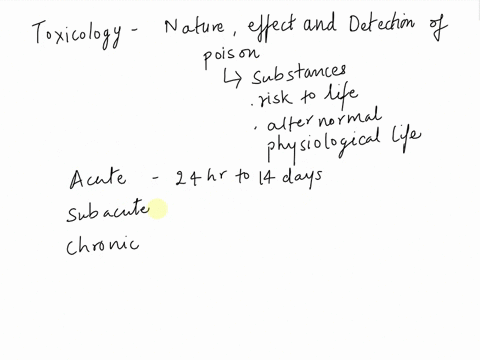 Toxicology - Nature, effect and Detection of
poison
↳ Substances
. risk to life
. alter normal
physiological life
Acute - 24 hr to 14 days
Subacute
Chronic